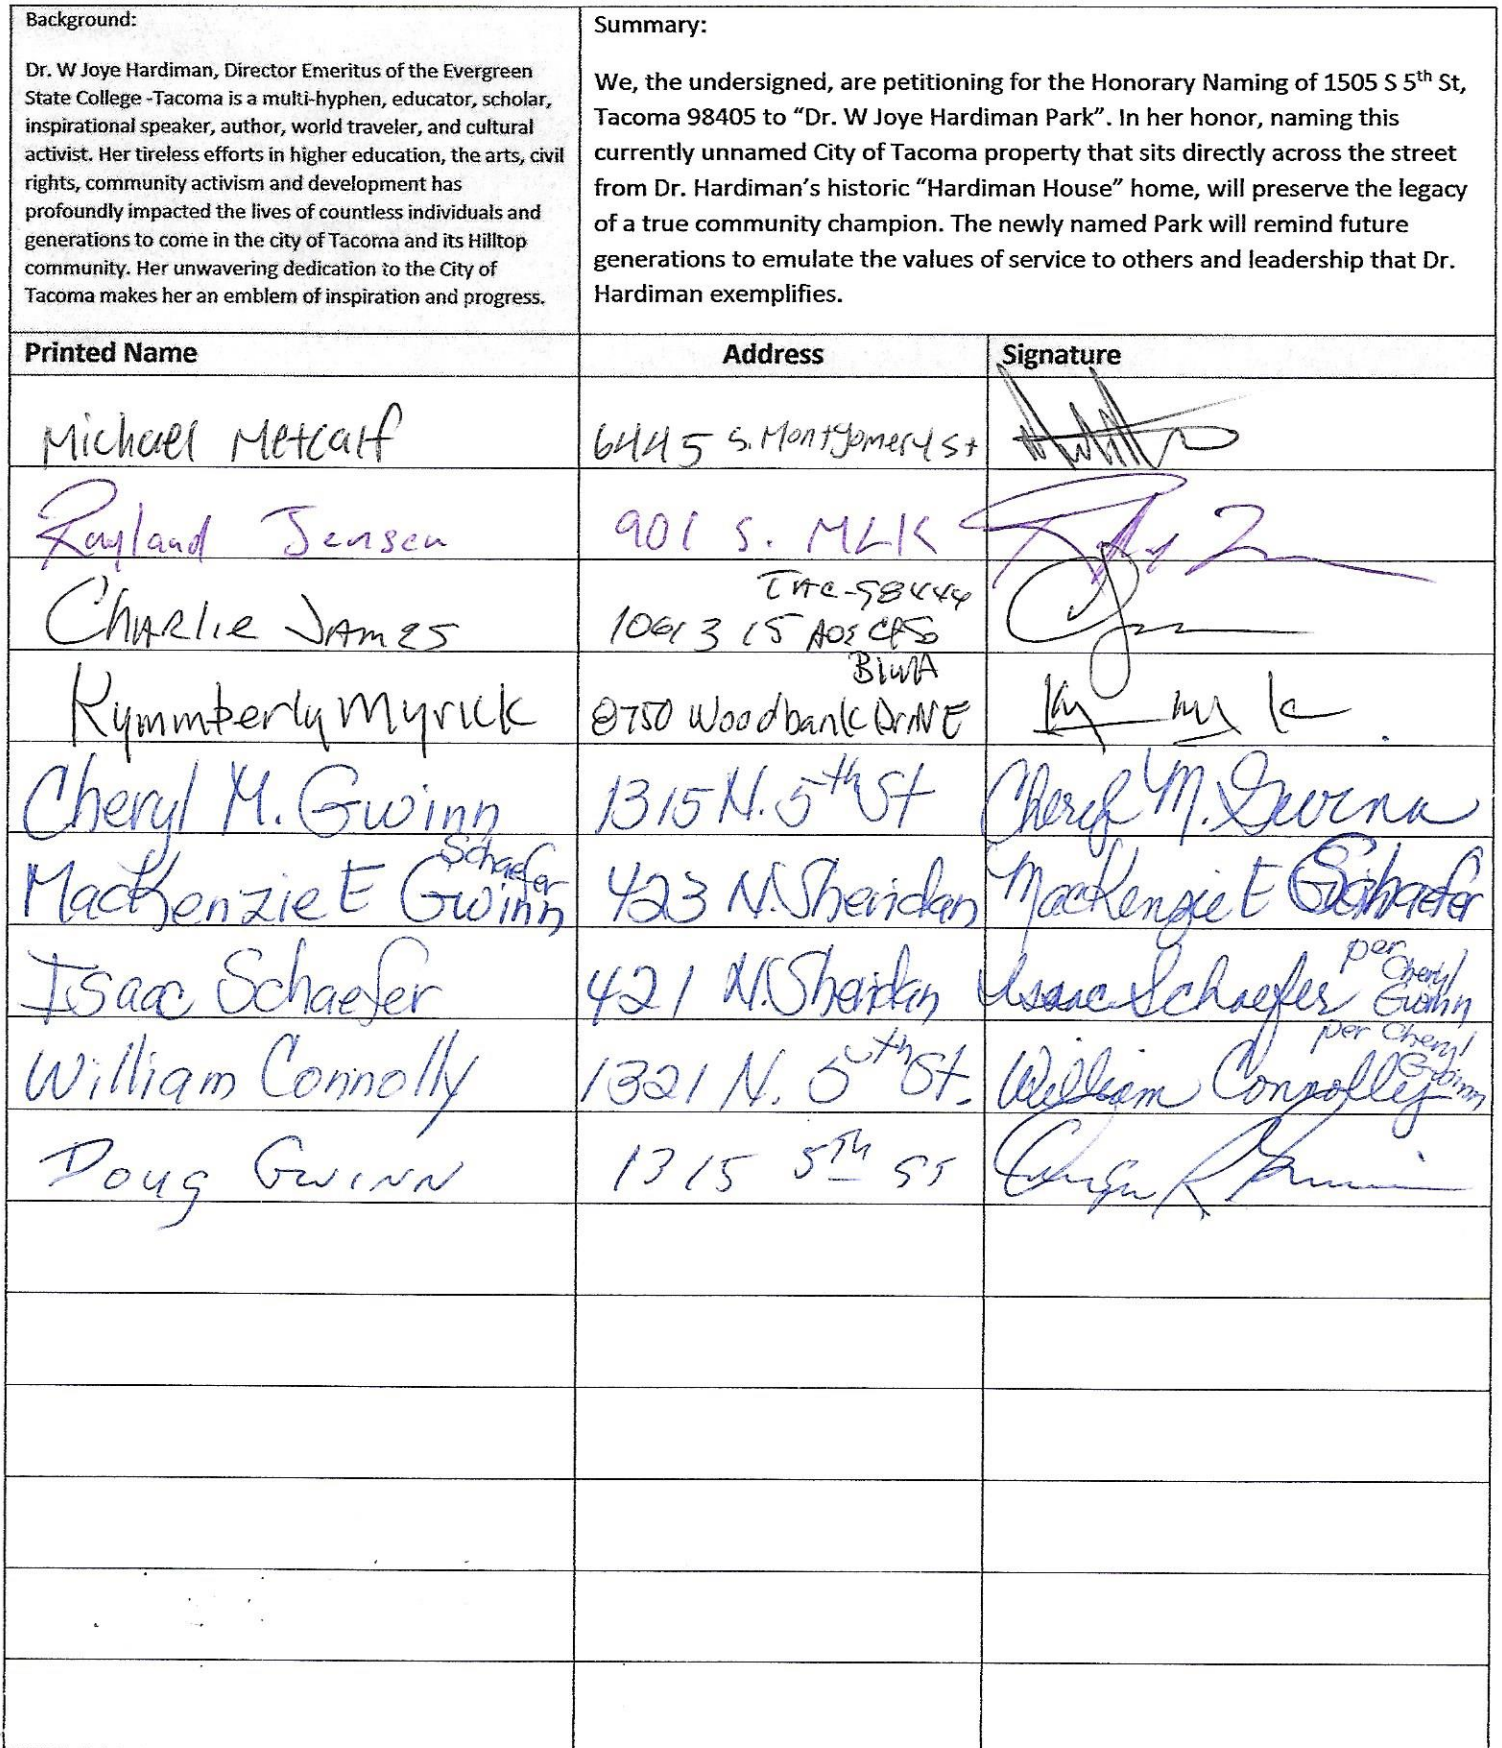 Background:
Dr. W Joye Hardiman, Director Emeritus of the Evergreen
State College -Tacoma is a multi-hyphen, educator, scholar,
inspirational speaker, author, world traveler, and cultural
activist. Her tireless efforts in higher education, the arts, civil
rights, community activism and development has
profoundly impacted the lives of countless individuals and
generations to come in the city of Tacoma and its Hilltop
community. Her unwavering dedication to the City of
Tacoma makes her an emblem of inspiration and progress.
Summary:
We, the undersigned, are petitioning for the Honorary Naming of 1505 S 5th St,
Tacoma 98405 to “Dr. W Joye Hardiman Park”. In her honor, naming this
currently unnamed City of Tacoma property that sits directly across the street
from Dr. Hardiman’s historic “Hardiman House” home, will preserve the legacy
of a true community champion. The newly named Park will remind future
generations to emulate the values of service to others and leadership that Dr.
Hardiman exemplifies.
Printed Name Address Signature
Michael Metcalf 6445 S. Montgomery St
Rayland Jensen 901 S. MLK
Charlie James
TAC-98444
10613 15
Kymmberly Myrick
8750 Woodbank Dr NE
Cheryl M. Gwinn 1315 N. 5th St Cheryl M. Gwinn
Schaefer
MacKenzie E Gwinn 423 N. Sheridan MacKenzie E Schaefer
Isaac Schaefer 421 N. Sheridan Isaac Schaefer per Cheryl Gwinn
William Connolly 1321 N. 5th St. William Connolly per Cheryl Gwinn
Doug Gwinn 1315 5th ST